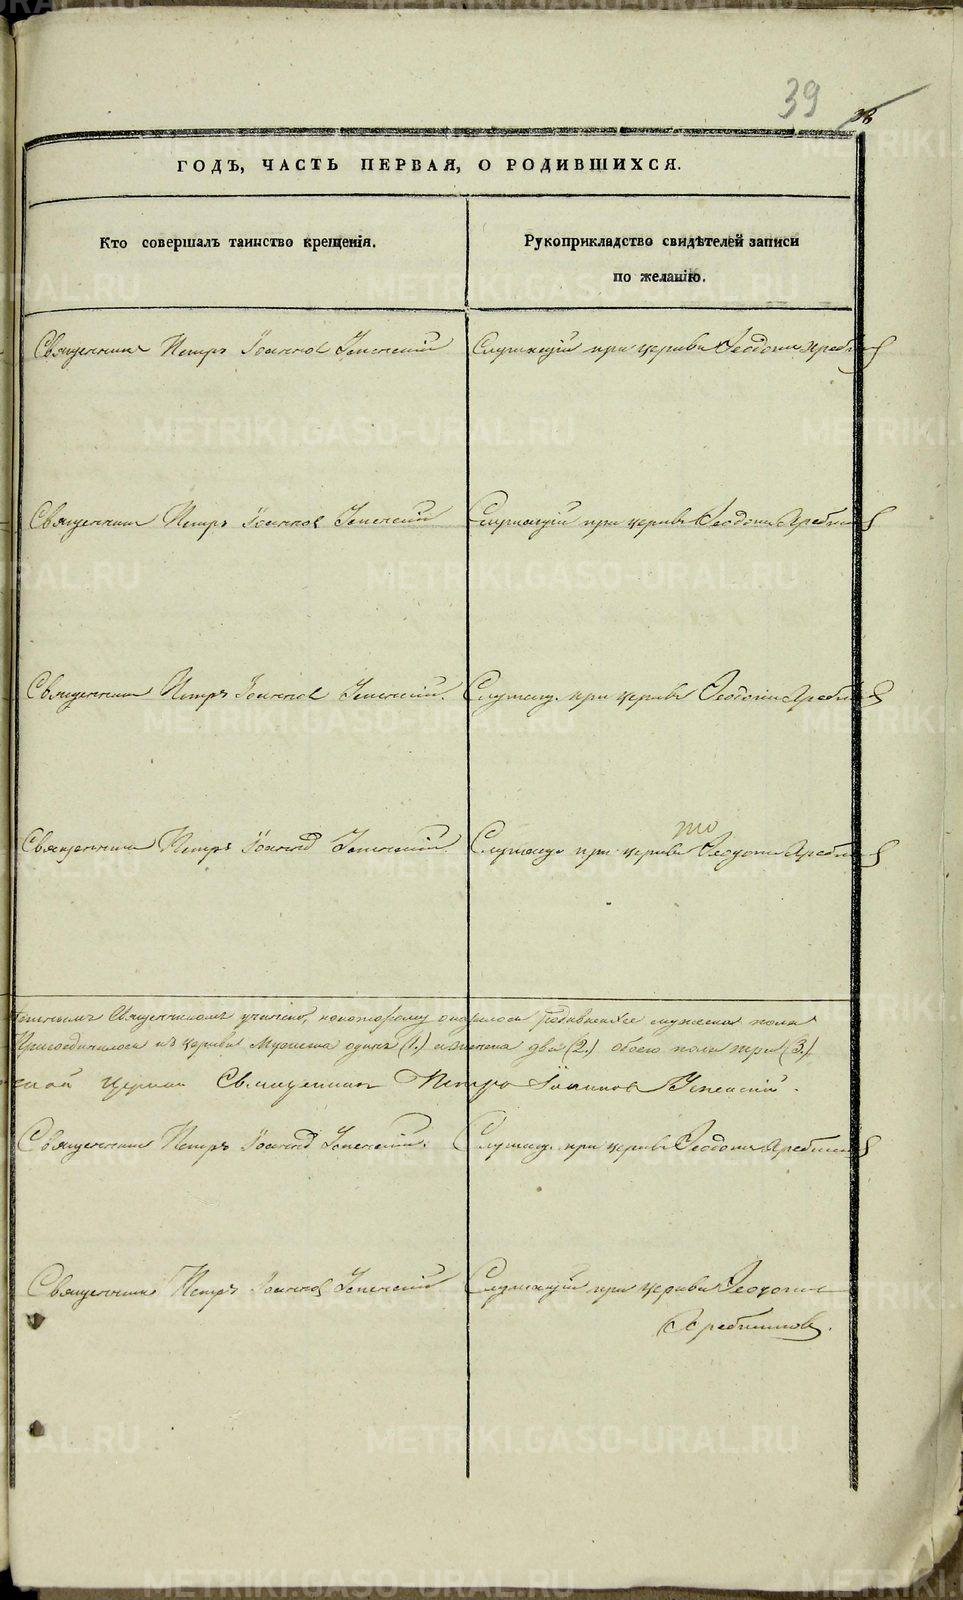 39
ГОДЪ, ЧАСТЬ ПЕРВАЯ, О РОДИВШИХСЯ.
Кто совершалъ таинство крещенія.
Рукоприкладство свидѣтелей записи
по желанію.
Священникъ Петръ Іоанновъ Успенскій
Служащій при церкви Ѳеодосій
Священникъ Петръ Іоанновъ Успенскій
Служащій при церкви Ѳеодосій
Священникъ Петръ Іоанновъ Успенскій.
Служащ. при церкви Ѳеодосій
Священникъ Петръ Іоаннов Успенскій.
то
Служащ. при церкви Ѳеодосій
Священникомъ учинено, по которому оказалось родившихся мужеска пола
Присоединилось къ церкви Мужеска одинъ (1.) и женска двѣ (2.) обоего пола три (3.)
ской Церкви Священникъ Петръ Іоанновъ Успенскій.
Священникъ Петръ Іоаннов Успенскій.
Служащ. при церкви Ѳеодосій
Священникъ Петръ Іоанновъ Успенскій
Служащій при церкви Ѳеодосій
METRIKI.GASO-URAL.RU